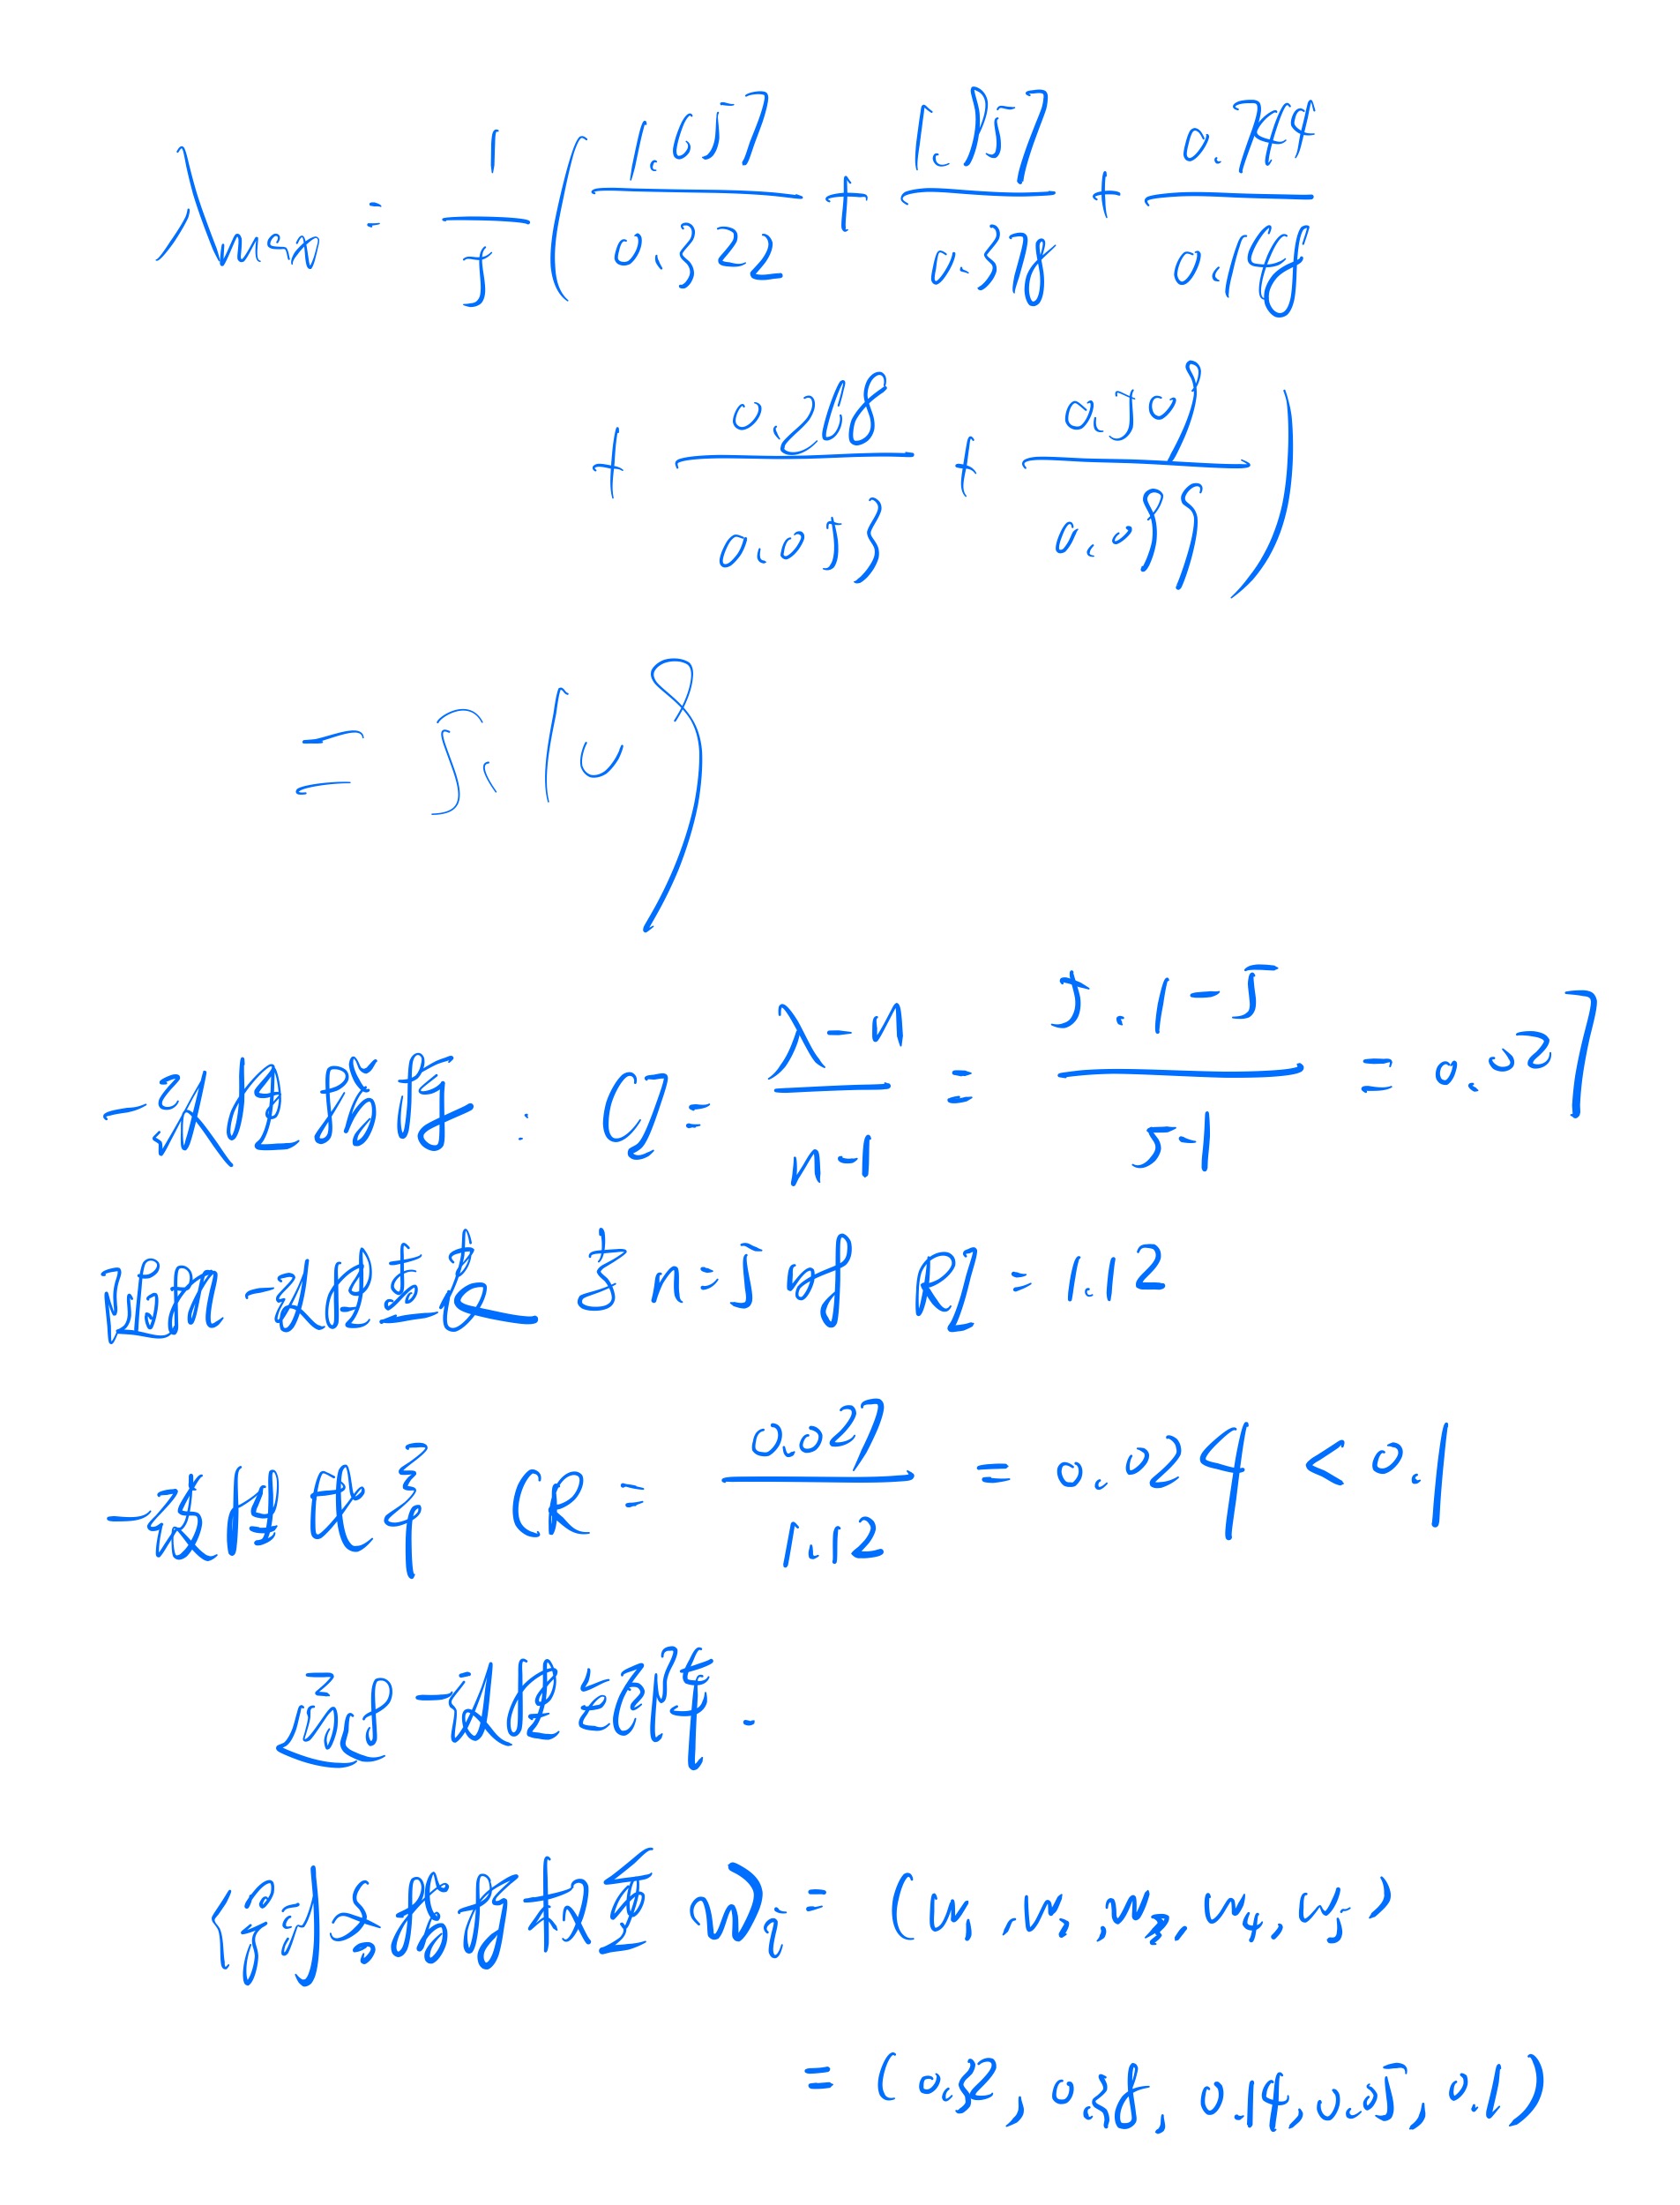 λmax = 1/5 ( 1.657/0.322 + 1.957/0.378 + 0.744/0.148
+ 0.268/0.053 + 0.508/0.099 )
= 5.108
一致性指标: CI = λ-n/n-1 = 5.1-5/5-1 = 0.027
随机一致性查表 当 n=5时 RI=1.12
一致性比率 CR= 0.027/1.12 = 0.024 < 0.1
通过一致性检验.
得到各指标权重 Wi = (W1, W2, W3, W4, W5)
= (0.32, 0.38, 0.14, 0.05, 0.1)